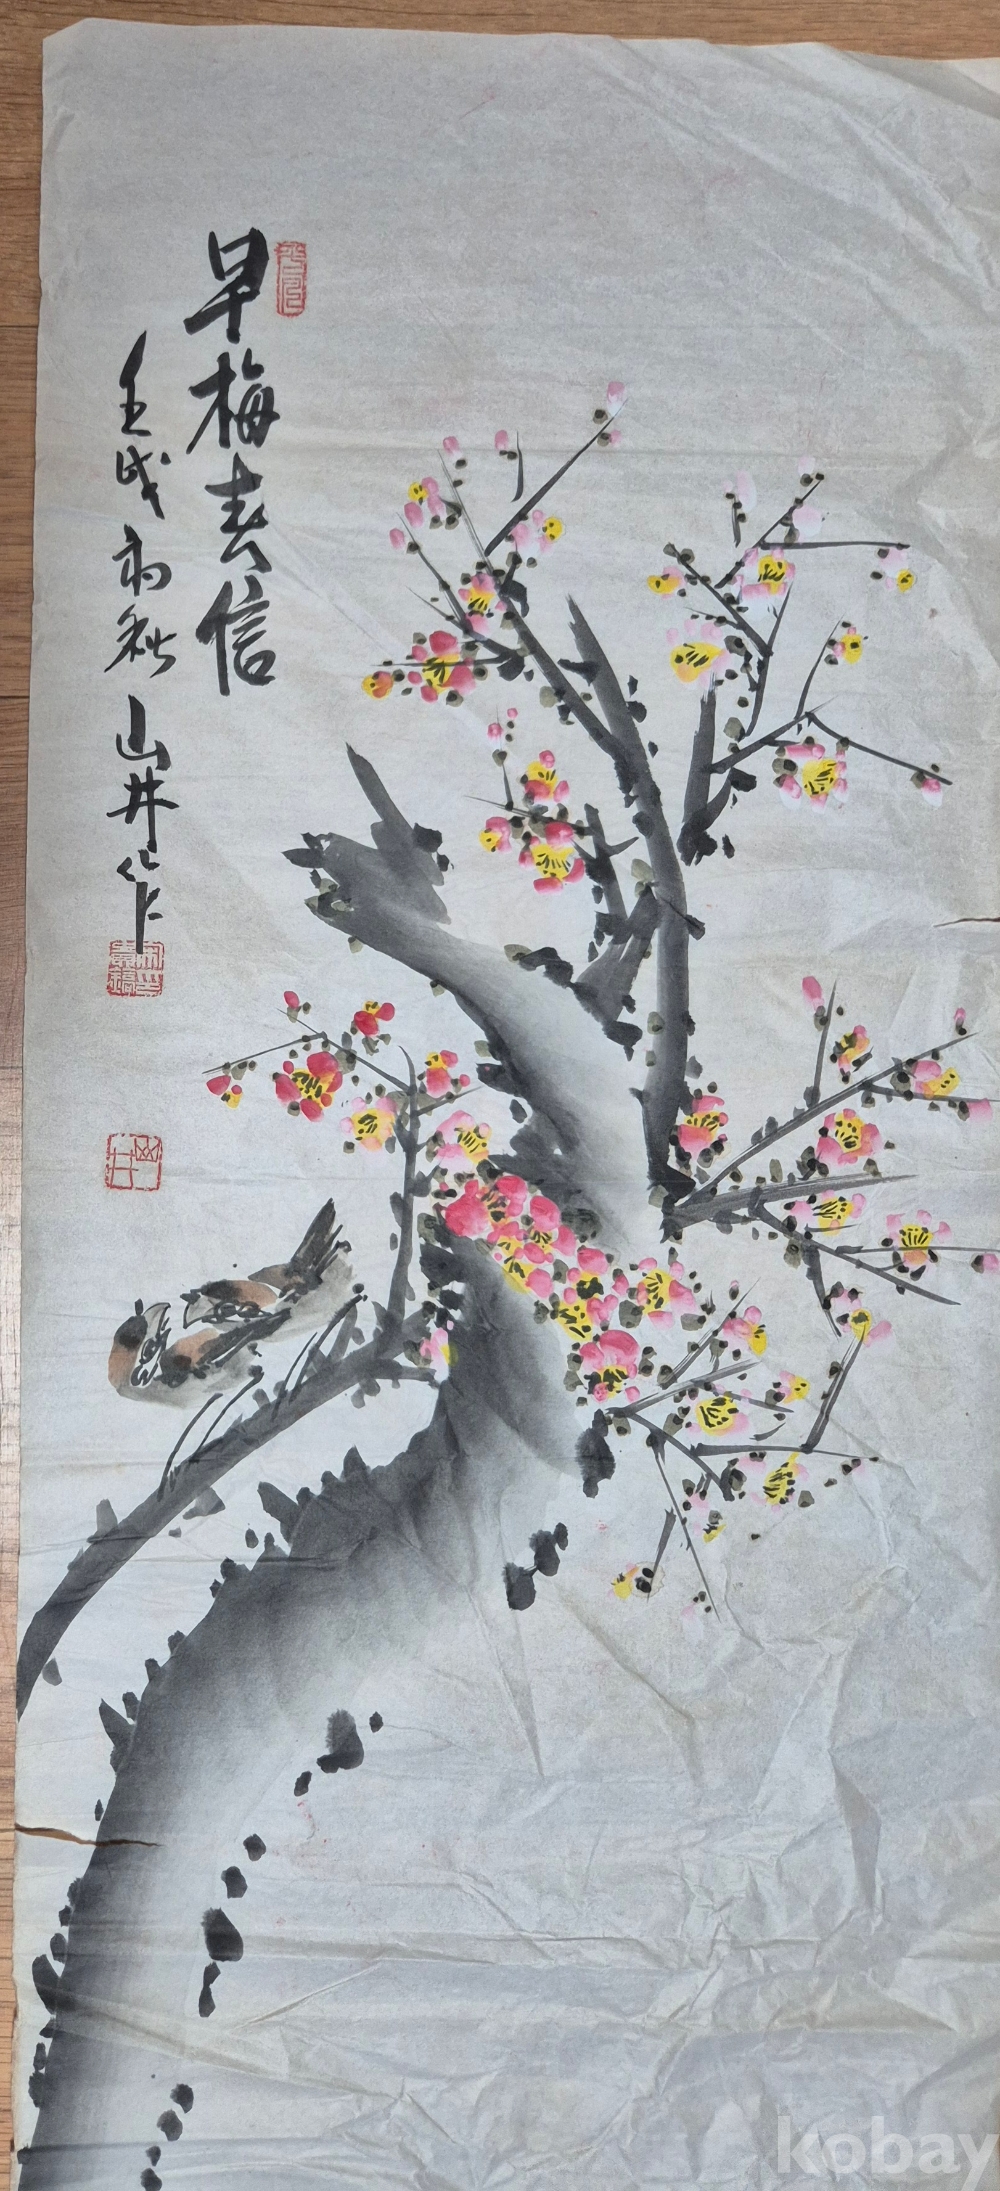 早梅春信
壬戌初秋 山井作
山井
kobay